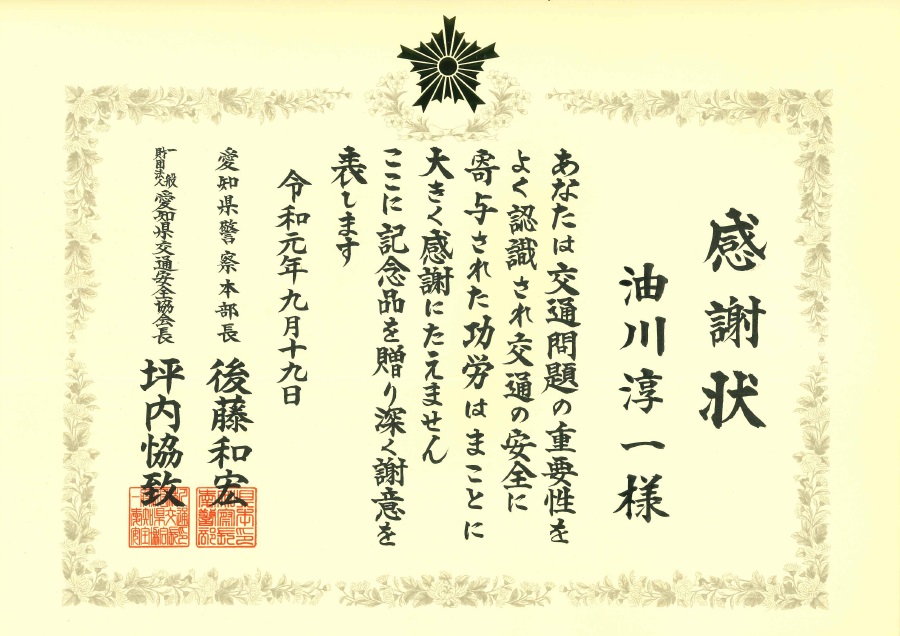 感謝状
油川淳一様
あなたは交通問題の重要性を
よく認識され交通の安全に
寄与された功労はまことに
大きく感謝にたえません
ここに記念品を贈り深く謝意を
表します
令和元年九月十九日
愛知県警察本部長 後藤和宏
一般財団法人愛知県交通安全協会長 坪内恊致